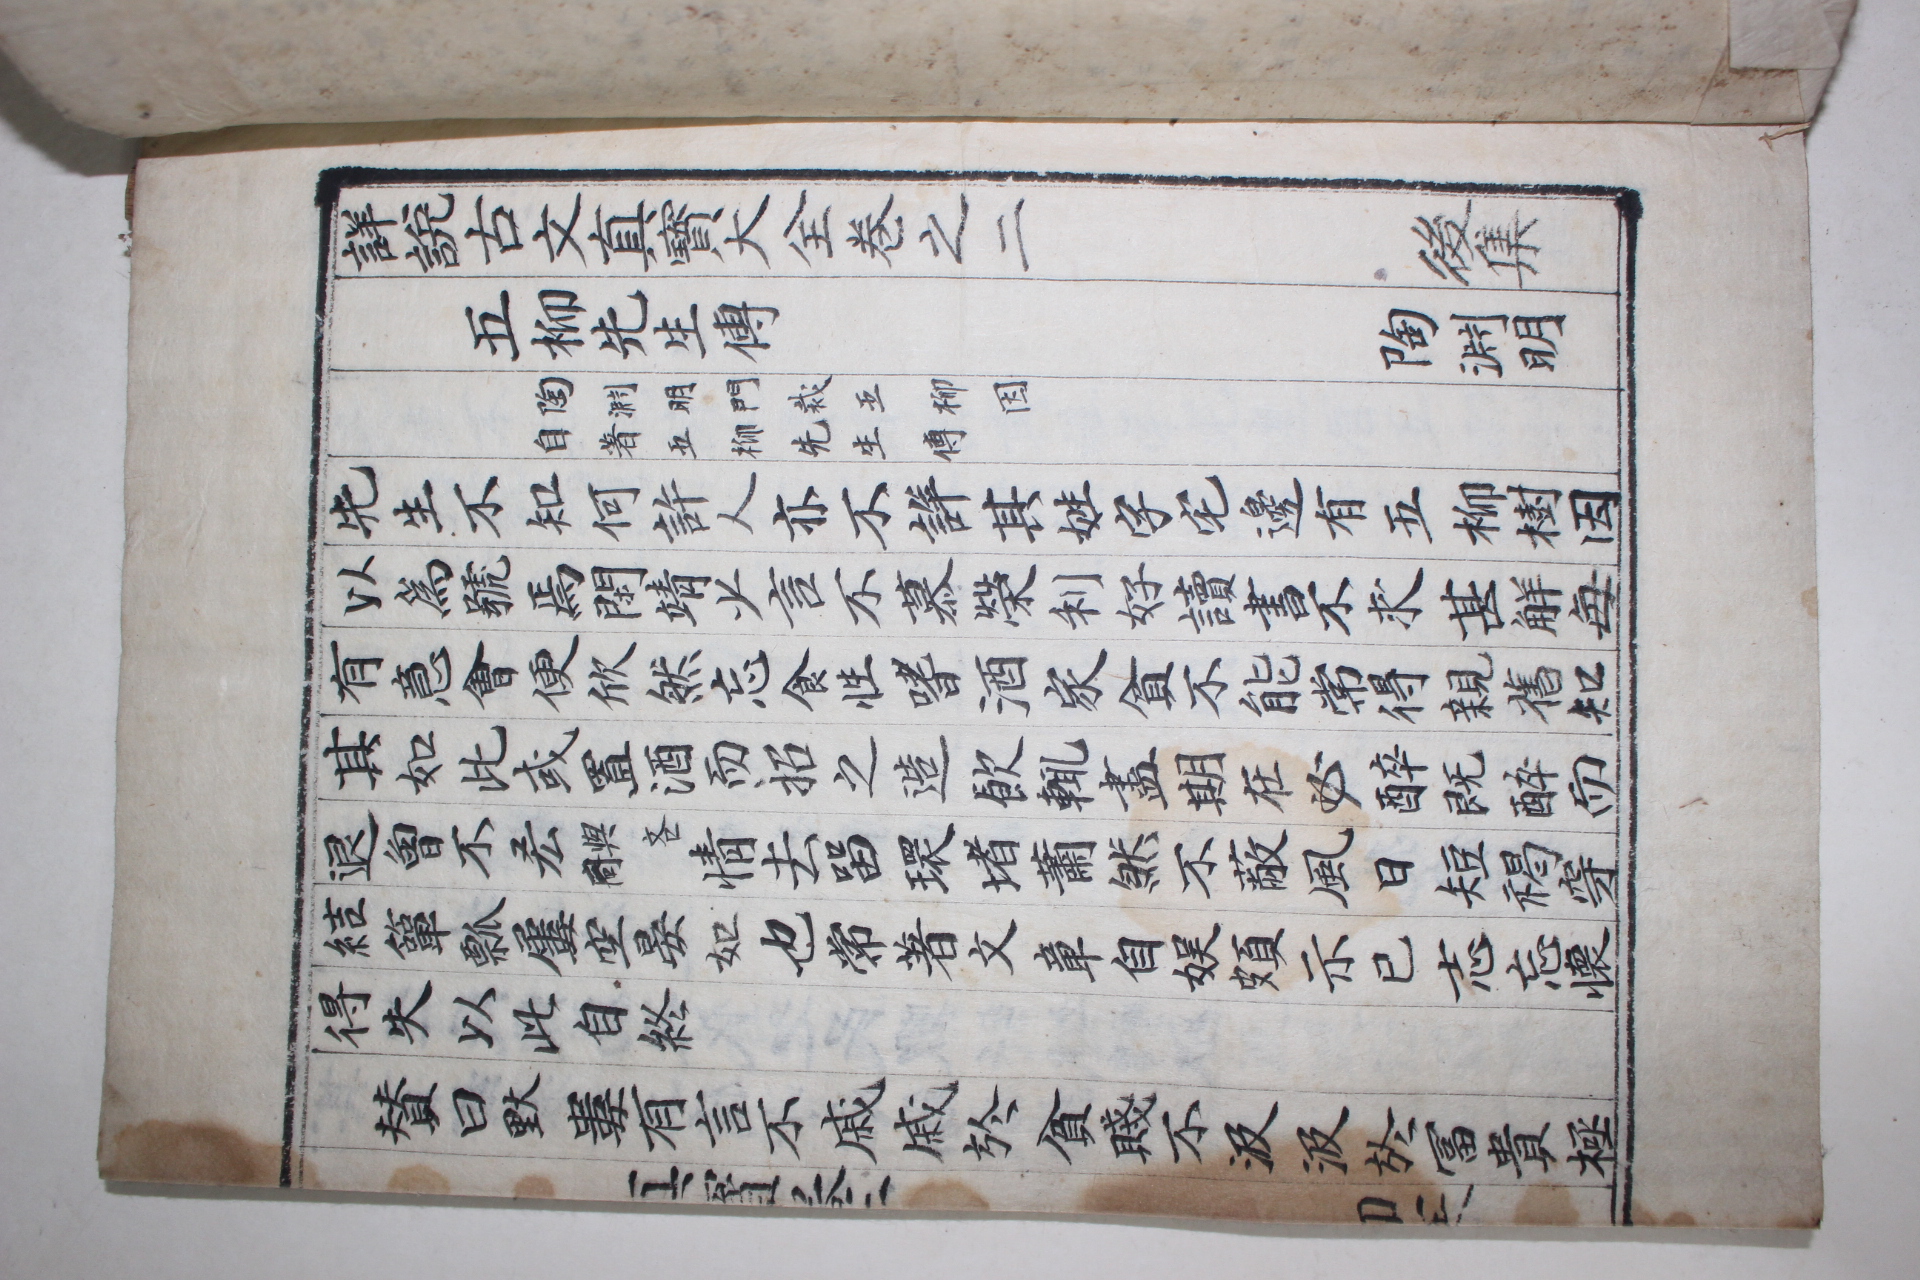 詳說古文真寶大全卷之二 後集
五柳先生傳 陶淵明
陶淵明門栽五柳因
自著五柳先生傳
先生不知何許人亦不詳其姓字宅邊有五柳樹因
以爲號焉閑靖少言不慕榮利好讀書不求甚解每
有意會便欣然忘食性嗜酒家貧不能常得親舊知
其如此或置酒而招之造飮輒盡期在必醉旣醉而
退曾不 與吝 情去留環堵蕭然不蔽風日短褐穿
結簞瓢屢空晏如也常著文章自娛頗示已志忘懷
得失以此自終
賛曰黔婁有言不戚戚於貧賤不汲汲於富貴極